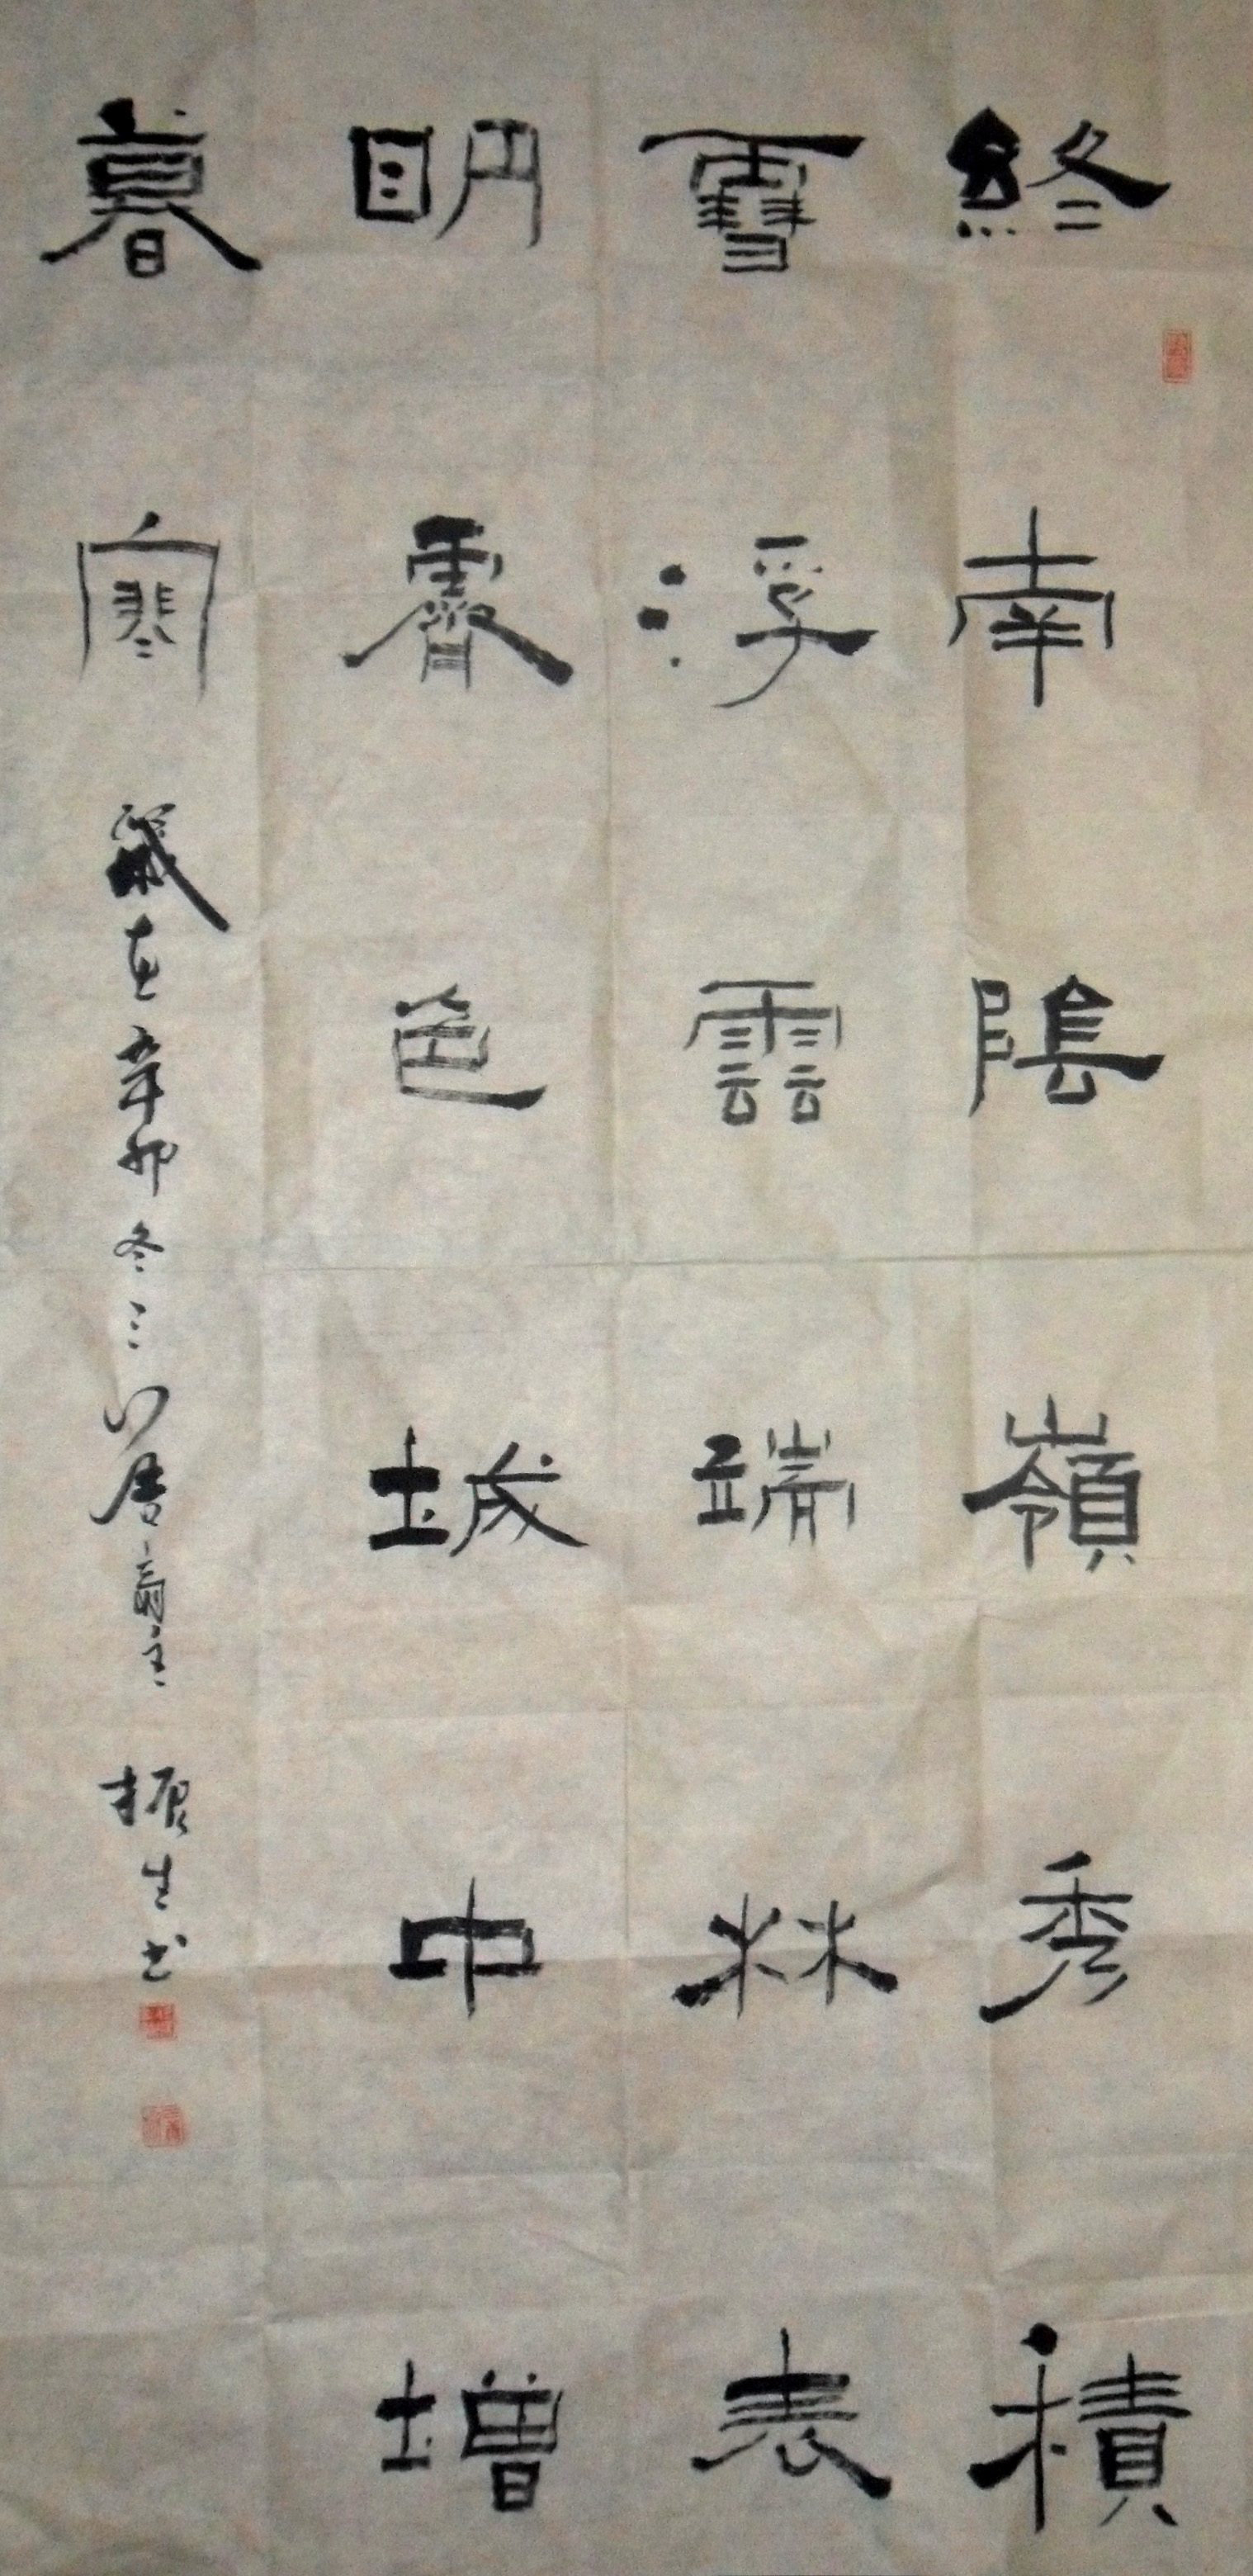 終南陰嶺秀積
雪浮雲端林表
明霽色城中增
暮寒 歲在辛卯冬三 居 主 振生书